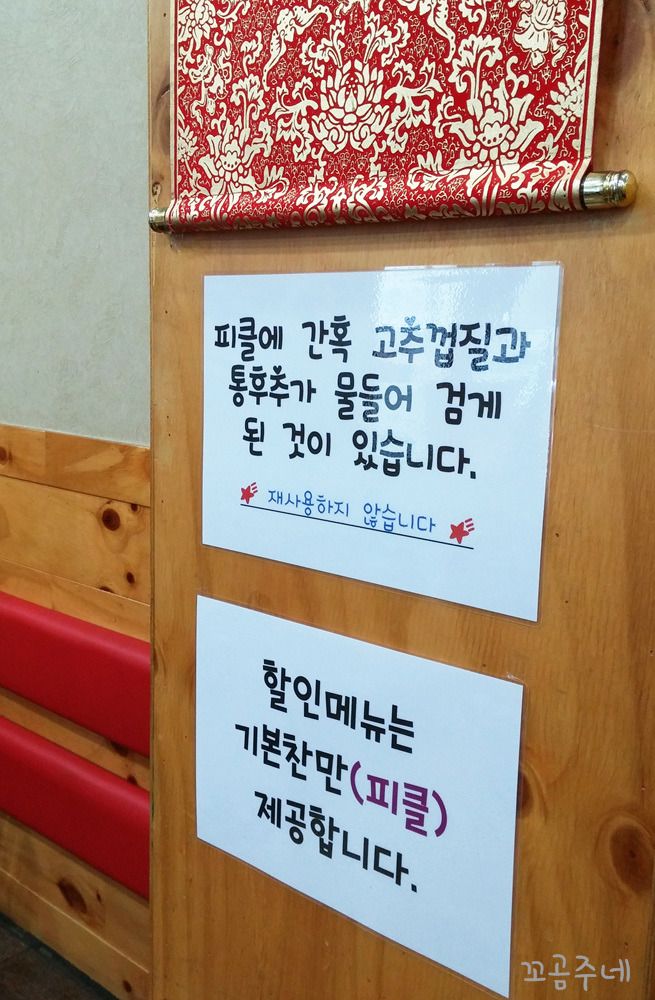 피클에 간혹 고추껍질과
통후추가 물들어 검게
된 것이 있습니다.
재사용하지 않습니다
할인메뉴는
기본찬만(피클)
제공합니다.
꼬곰주네